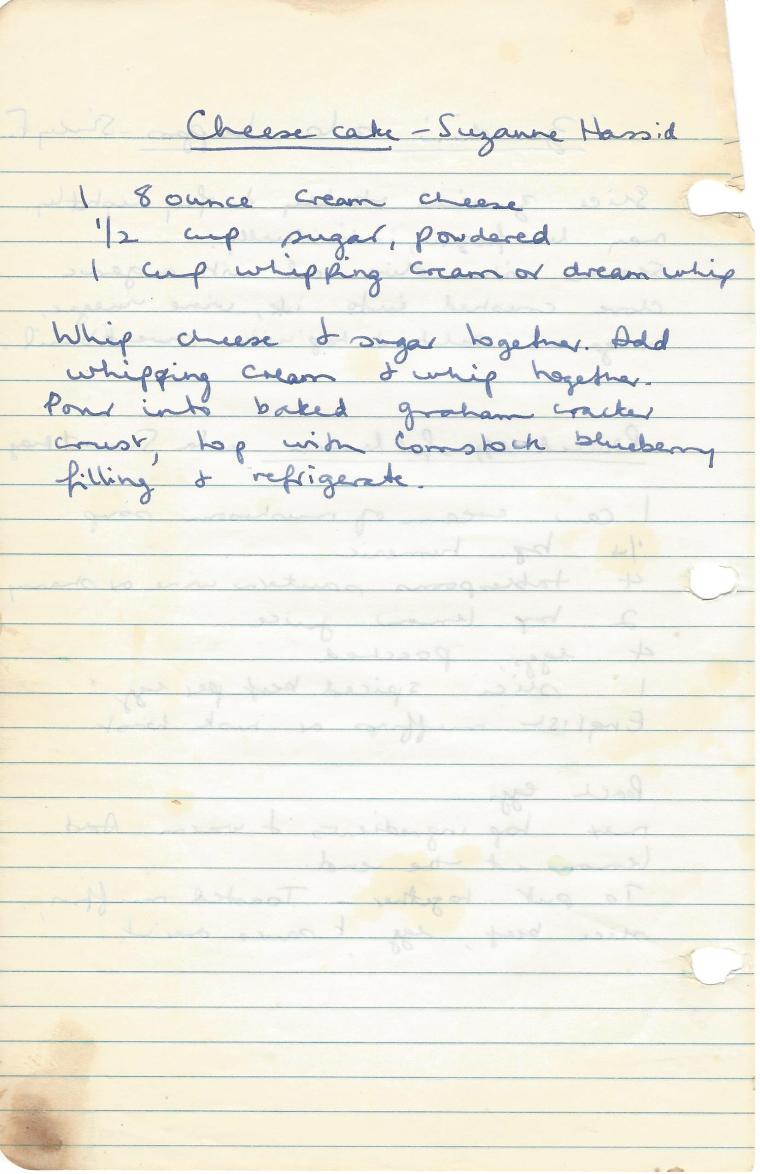 Cheese cake - Suzanne Hassid
1 8 ounce cream cheese
1/2 cup sugar, powdered
1 cup whipping cream or dream whip
Whip cheese & sugar together. Add
whipping cream & whip together.
Pour into baked graham cracker
crust, top with Comstock blueberry
filling & refrigerate.